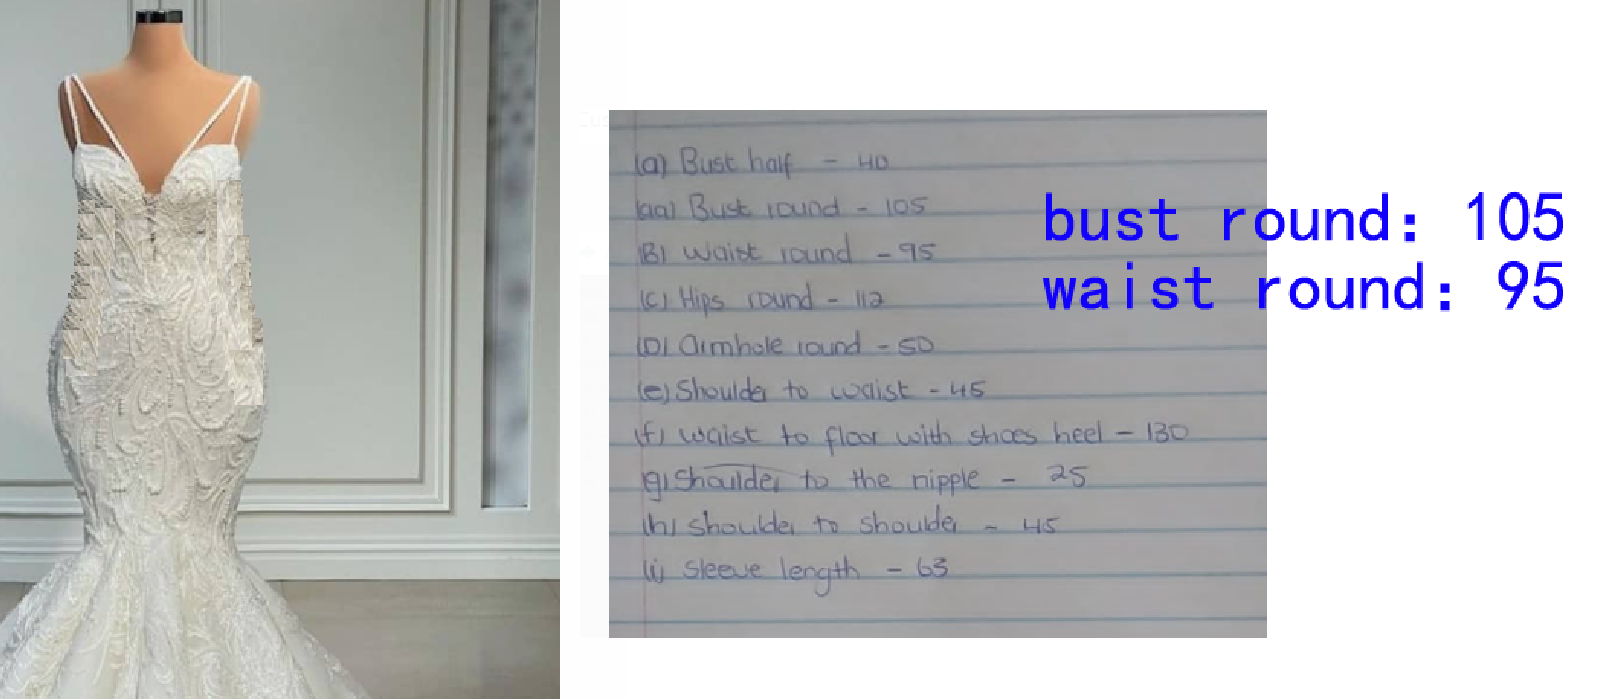 (a) Bust half - 40
(aa) Bust round - 105
(B) Waist round - 95
(c) Hips round - 112
(D) Armhole round - 50
(e) Shoulder to waist - 45
(f) waist to floor with shoes heel - 130
(g) Shoulder to the nipple - 25
(h) shoulder to shoulder - 45
(i) Sleeve length - 63
bust round: 105
waist round: 95